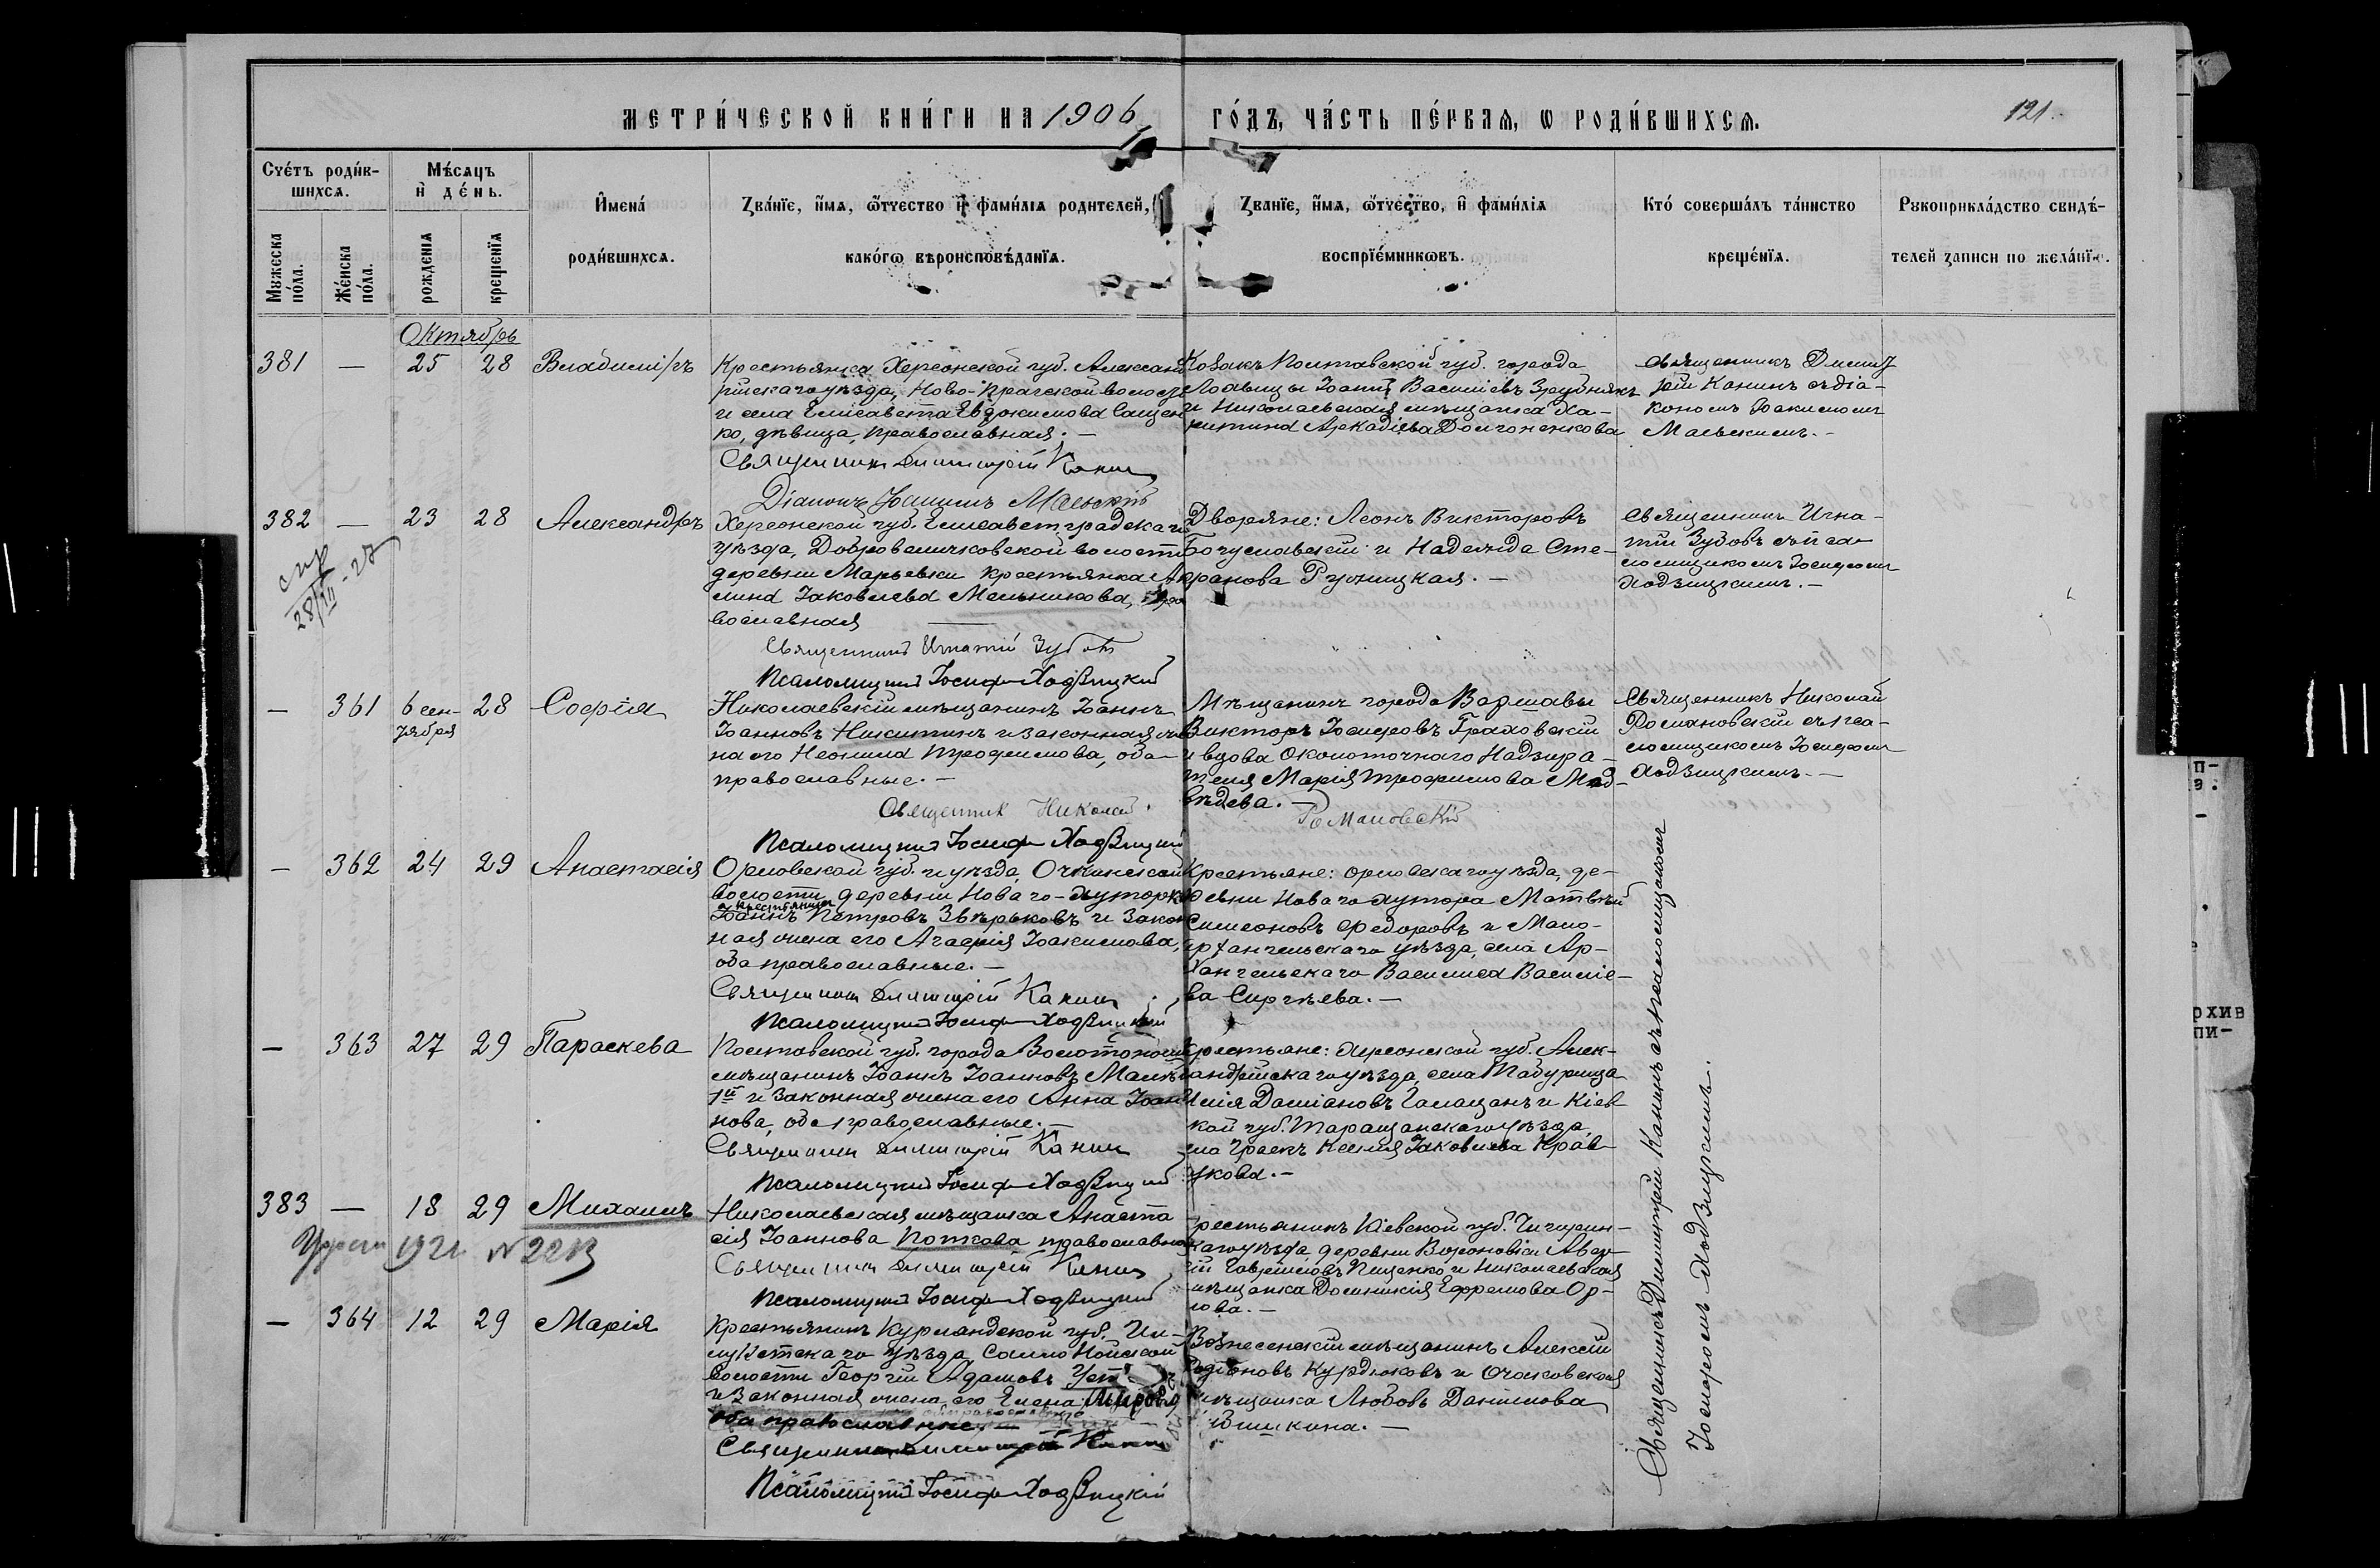 МЕТРИ́ЧЕСКОЙ КНИ́ГИ НА 1906 ГО́ДЪ, ЧА́СТЬ ПЕ́РВАЯ, Ѡ РОДИ́ВШИХСЯ.
121.
Счétъ роди́в-
шихся.
Мѣ́сяцъ
и҆ де́нь.
Мужеска по́ла.
Же́нска по́ла.
рожденія
крещенія
И҆мена́
роди́вшихся.
Зва́нїе, и҆́мя, ѻ҆́тчество и҆ фами́лїя родителей,
како́гѡ вѣроисповѣ́данїя.
Зва́нїе, и҆́мя, ѻ҆́тчество, и҆ фами́лїя
воспрїе́мникѡвъ.
Кто́ соверша́лъ та́инство
креще́нїя.
Рукоприкла́дство свидѣ́-
телей записи по жела́нїю.
Октябрь
381 — 25 28 Владиміръ
Крестьянка Херсонской губ. Алексан
рійскаго уѣзда, Ново-Прагской волости
и села Елисавета Евдокимова Сащен
ко, дѣвица, православная. —
Священник Димитрій Канин
Діаконъ Іоакимъ Маевскій
Козакъ Полтавской губ. города
Лохвицы Іоаннъ Василіевъ Зрубнякъ
и Николаевская мѣщанка Ха-
ритина Аркадіева Долгоненкова
Священникъ Димит
рій Канинъ съ діа-
кономъ Іоакимомъ
Маевскимъ. —
382 — 23 28 Александръ
28/VII-27
Херсонской губ. Елисаветградскаго
уѣзда, Добровеличковской волости
деревни Марьевки крестьянка Ак
лина Іаковлева Мельникова, пра
вославная
Священникъ Игнатій Зубовъ
Псаломщикъ Іосифъ Ходзицкій
Дворяне: Леонъ Викторовъ
Богуславскій и Надежда Сте-
фанова Ружицкая. —
Священникъ Игна-
тій Зубовъ съ пса-
ломщикомъ Іосифомъ
Ходзицкимъ. —
— 361 6 сен- 28 Софія
тября
Николаевскій мѣщанинъ Іоаннъ
Іоанновъ Никитинъ и законная же
на его Неонила Трофимова, оба
православные. —
Священник Николай Романовскій
Псаломщикъ Іосифъ Ходзицкій
Мѣщанинъ города Варшавы
Викторъ Іосифовъ Граховскій
и вдова Околоточнаго Надзира-
теля Марія Трофимова Мед-
вѣдева. —
Священникъ Николай
Романовскій съ пса-
ломщикомъ Іосифомъ
Ходзицкимъ. —
— 362 24 29 Анастасія
Орловской губ. и уѣзда,
волости деревни Новаго-Хутора
крестьянинъ
Іоаннъ Петровъ Звѣрьковъ и закон
ная жена его Агафія Іоакимова,
оба православные. —
Священник Димитрій Канин
Псаломщикъ Іосифъ Ходзицкій
Крестьяне: Орловскаго уѣзда, де-
ревни Новаго Хутора Матвѣй
Симеоновъ Федоровъ и Мало-
архангельскаго уѣзда, села Ар-
хангельскаго Василиса Василіе-
ва Сиргѣева. —
— 363 27 29 Параскева
Полтавской губ. города Золотоноши
мѣщанинъ Іоаннъ Іоанновъ
1й и законная жена его Анна Іоан
нова, оба православные. —
Священник Димитрій Канин
Псаломщикъ Іосифъ Ходзицкій
Крестьяне: Херсонской губ. Алек-
сандрійскаго уѣзда, села Табурища
Илія Даміановъ Галаганъ и Кіев
кой губ. Таращанскаго уѣзда,
Ксенія Іаковлева Крав-
цкова. —
383 — 18 29 Михаилъ
1921 № 2213
Николаевская мѣщанка Анаста
сія Іоаннова Попкова православная
Священник Димитрій Канин
Псаломщикъ Іосифъ Ходзицкій
рестьянинъ Кіевской губ. Чигирин-
каго уѣзда, деревни
Гавріиловъ Пищенко и Николаевская
мѣщанка Домникія Ефремова Ор-
лова. —
— 364 12 29 Марія
Крестьянинъ Курляндской губ. Ил-
лукстскаго уѣзда
волости Георгій Адамовъ
и законная жена его Елена
оба православные
Священник Димитрій Канин
Псаломщикъ Іосифъ Ходзицкій
Вознесенскій мѣщанинъ Алексій
Родіоновъ Курдюковъ и Очаковская
мѣщанка Любовь Данилова
Священникъ Димитрій Канинъ съ псаломщикомъ
Іосифомъ Ходзицкимъ.